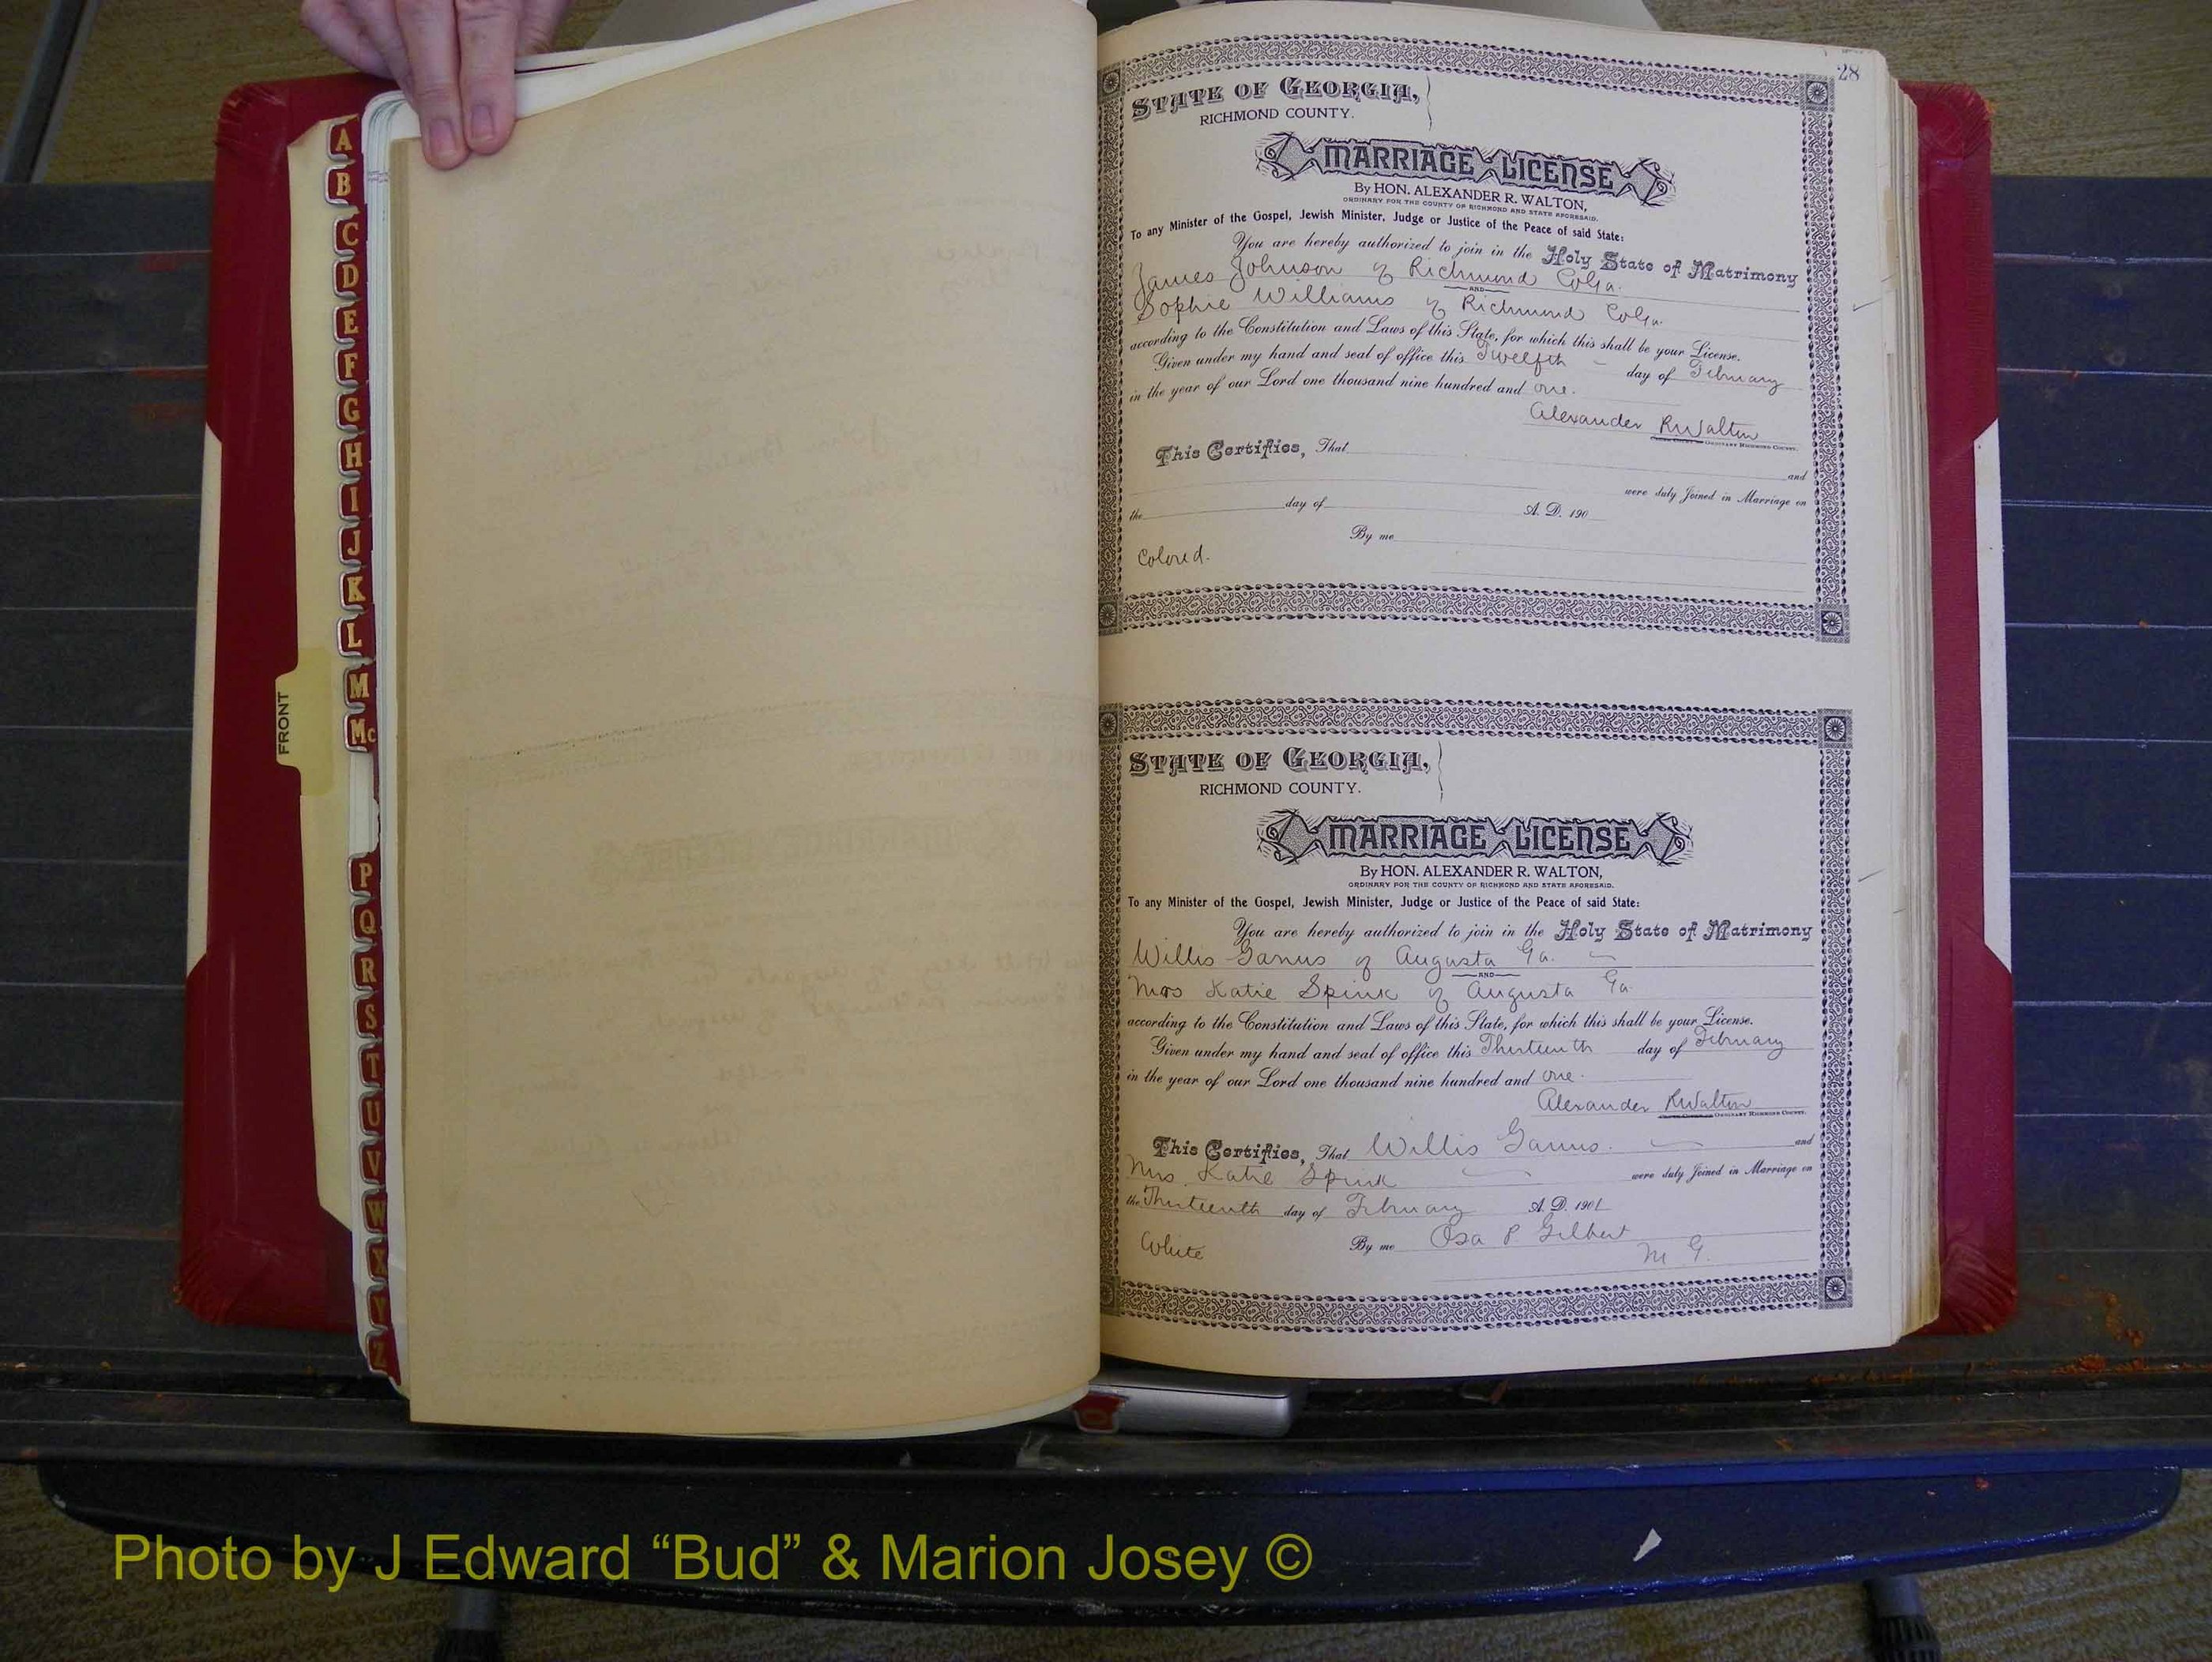 A
B
C
D
E
F
G
H
I
J
K
L
M
Mc
P
Q
R
S
T
U
V
W
X
Y
Z
FRONT
28
STATE OF GEORGIA,
RICHMOND COUNTY.
MARRIAGE LICENSE
By HON. ALEXANDER R. WALTON,
ORDINARY FOR THE COUNTY OF RICHMOND AND STATE AFORESAID.
To any Minister of the Gospel, Jewish Minister, Judge or Justice of the Peace of said State:
You are hereby authorized to join in the Holy State of Matrimony
James Johnson of Richmond Co Ga.
AND
Sophie Williams of Richmond Co Ga.
according to the Constitution and Laws of this State, for which this shall be your License.
Given under my hand and seal of office this Twelfth day of February
in the year of our Lord one thousand nine hundred and one.
Alexander R Walton
ORDINARY RICHMOND COUNTY.
This Certifies, That
and
were duly Joined in Marriage on
the day of A. D. 190
By me
Colored.
STATE OF GEORGIA,
RICHMOND COUNTY.
MARRIAGE LICENSE
By HON. ALEXANDER R. WALTON,
ORDINARY FOR THE COUNTY OF RICHMOND AND STATE AFORESAID.
To any Minister of the Gospel, Jewish Minister, Judge or Justice of the Peace of said State:
You are hereby authorized to join in the Holy State of Matrimony
Willis Ganus of Augusta Ga.
AND
Mrs Katie Spink of Augusta Ga.
according to the Constitution and Laws of this State, for which this shall be your License.
Given under my hand and seal of office this Thirteenth day of February
in the year of our Lord one thousand nine hundred and one.
Alexander R Walton
ORDINARY RICHMOND COUNTY.
This Certifies, That Willis Ganus. and
Mrs. Katie Spink were duly Joined in Marriage on
the Thirteenth day of February A. D. 1901
White By me Osa P. Gilbert
M G.
Photo by J Edward “Bud” & Marion Josey ©